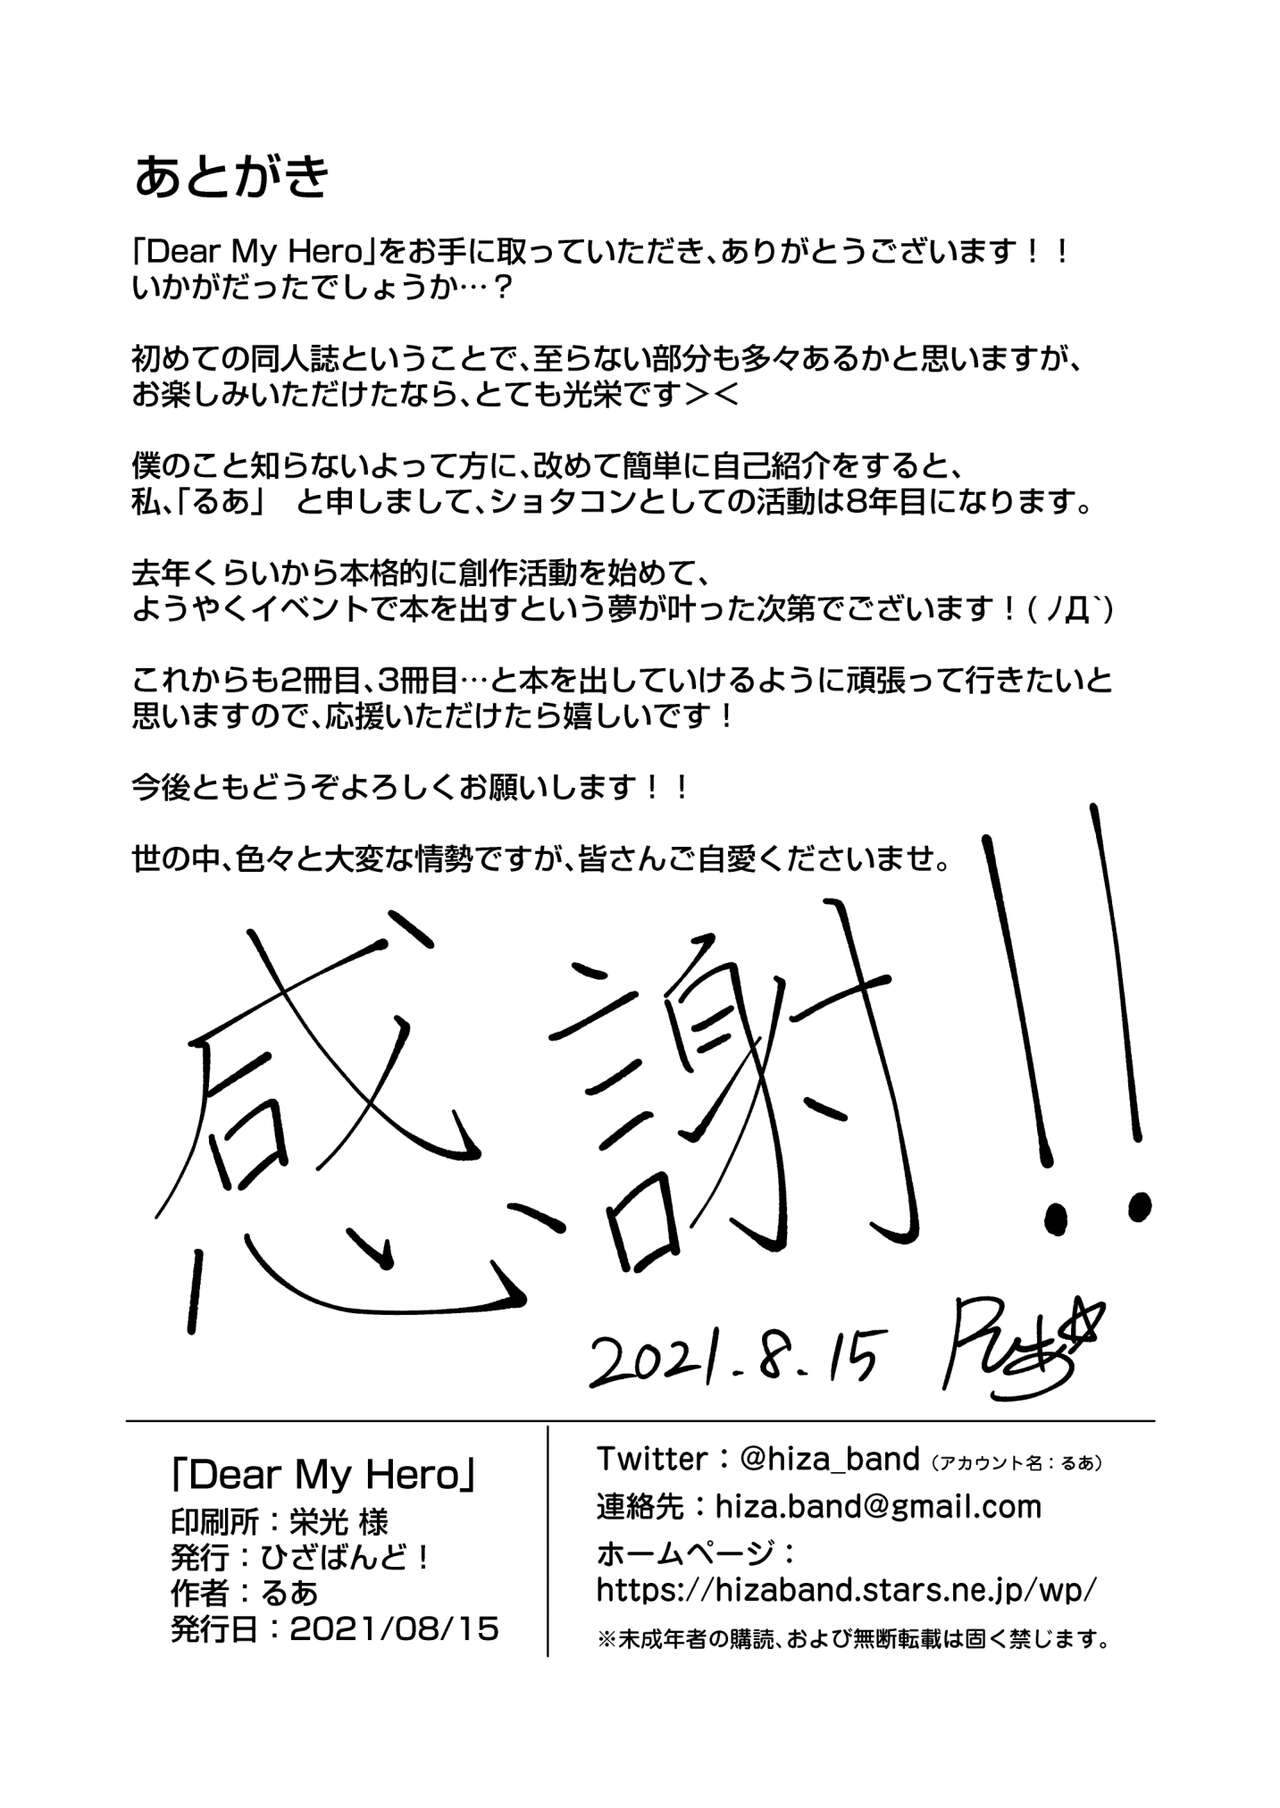 あとがき
「Dear My Hero」をお手に取っていただき、ありがとうございます！！
いかがだったでしょうか…？
初めての同人誌ということで、至らない部分も多々あるかと思いますが、
お楽しみいただけたなら、とても光栄です＞＜
僕のこと知らないよって方に、改めて簡単に自己紹介をすると、
私、「るあ」　と申しまして、ショタコンとしての活動は8年目になります。
去年くらいから本格的に創作活動を始めて、
ようやくイベントで本を出すという夢が叶った次第でございます！( ﾉД`)
これからも2冊目、3冊目…と本を出していけるように頑張って行きたいと
思いますので、応援いただけたら嬉しいです！
今後ともどうぞよろしくお願いします！！
世の中、色々と大変な情勢ですが、皆さんご自愛くださいませ。
感謝!!
2021.8.15 るあ☆
「Dear My Hero」
印刷所：栄光 様
発行：ひざばんど！
作者：るあ
発行日：2021/08/15
Twitter：@hiza_band（アカウント名：るあ）
連絡先：hiza.band@gmail.com
ホームページ：
https://hizaband.stars.ne.jp/wp/
※未成年者の購読、および無断転載は固く禁じます。